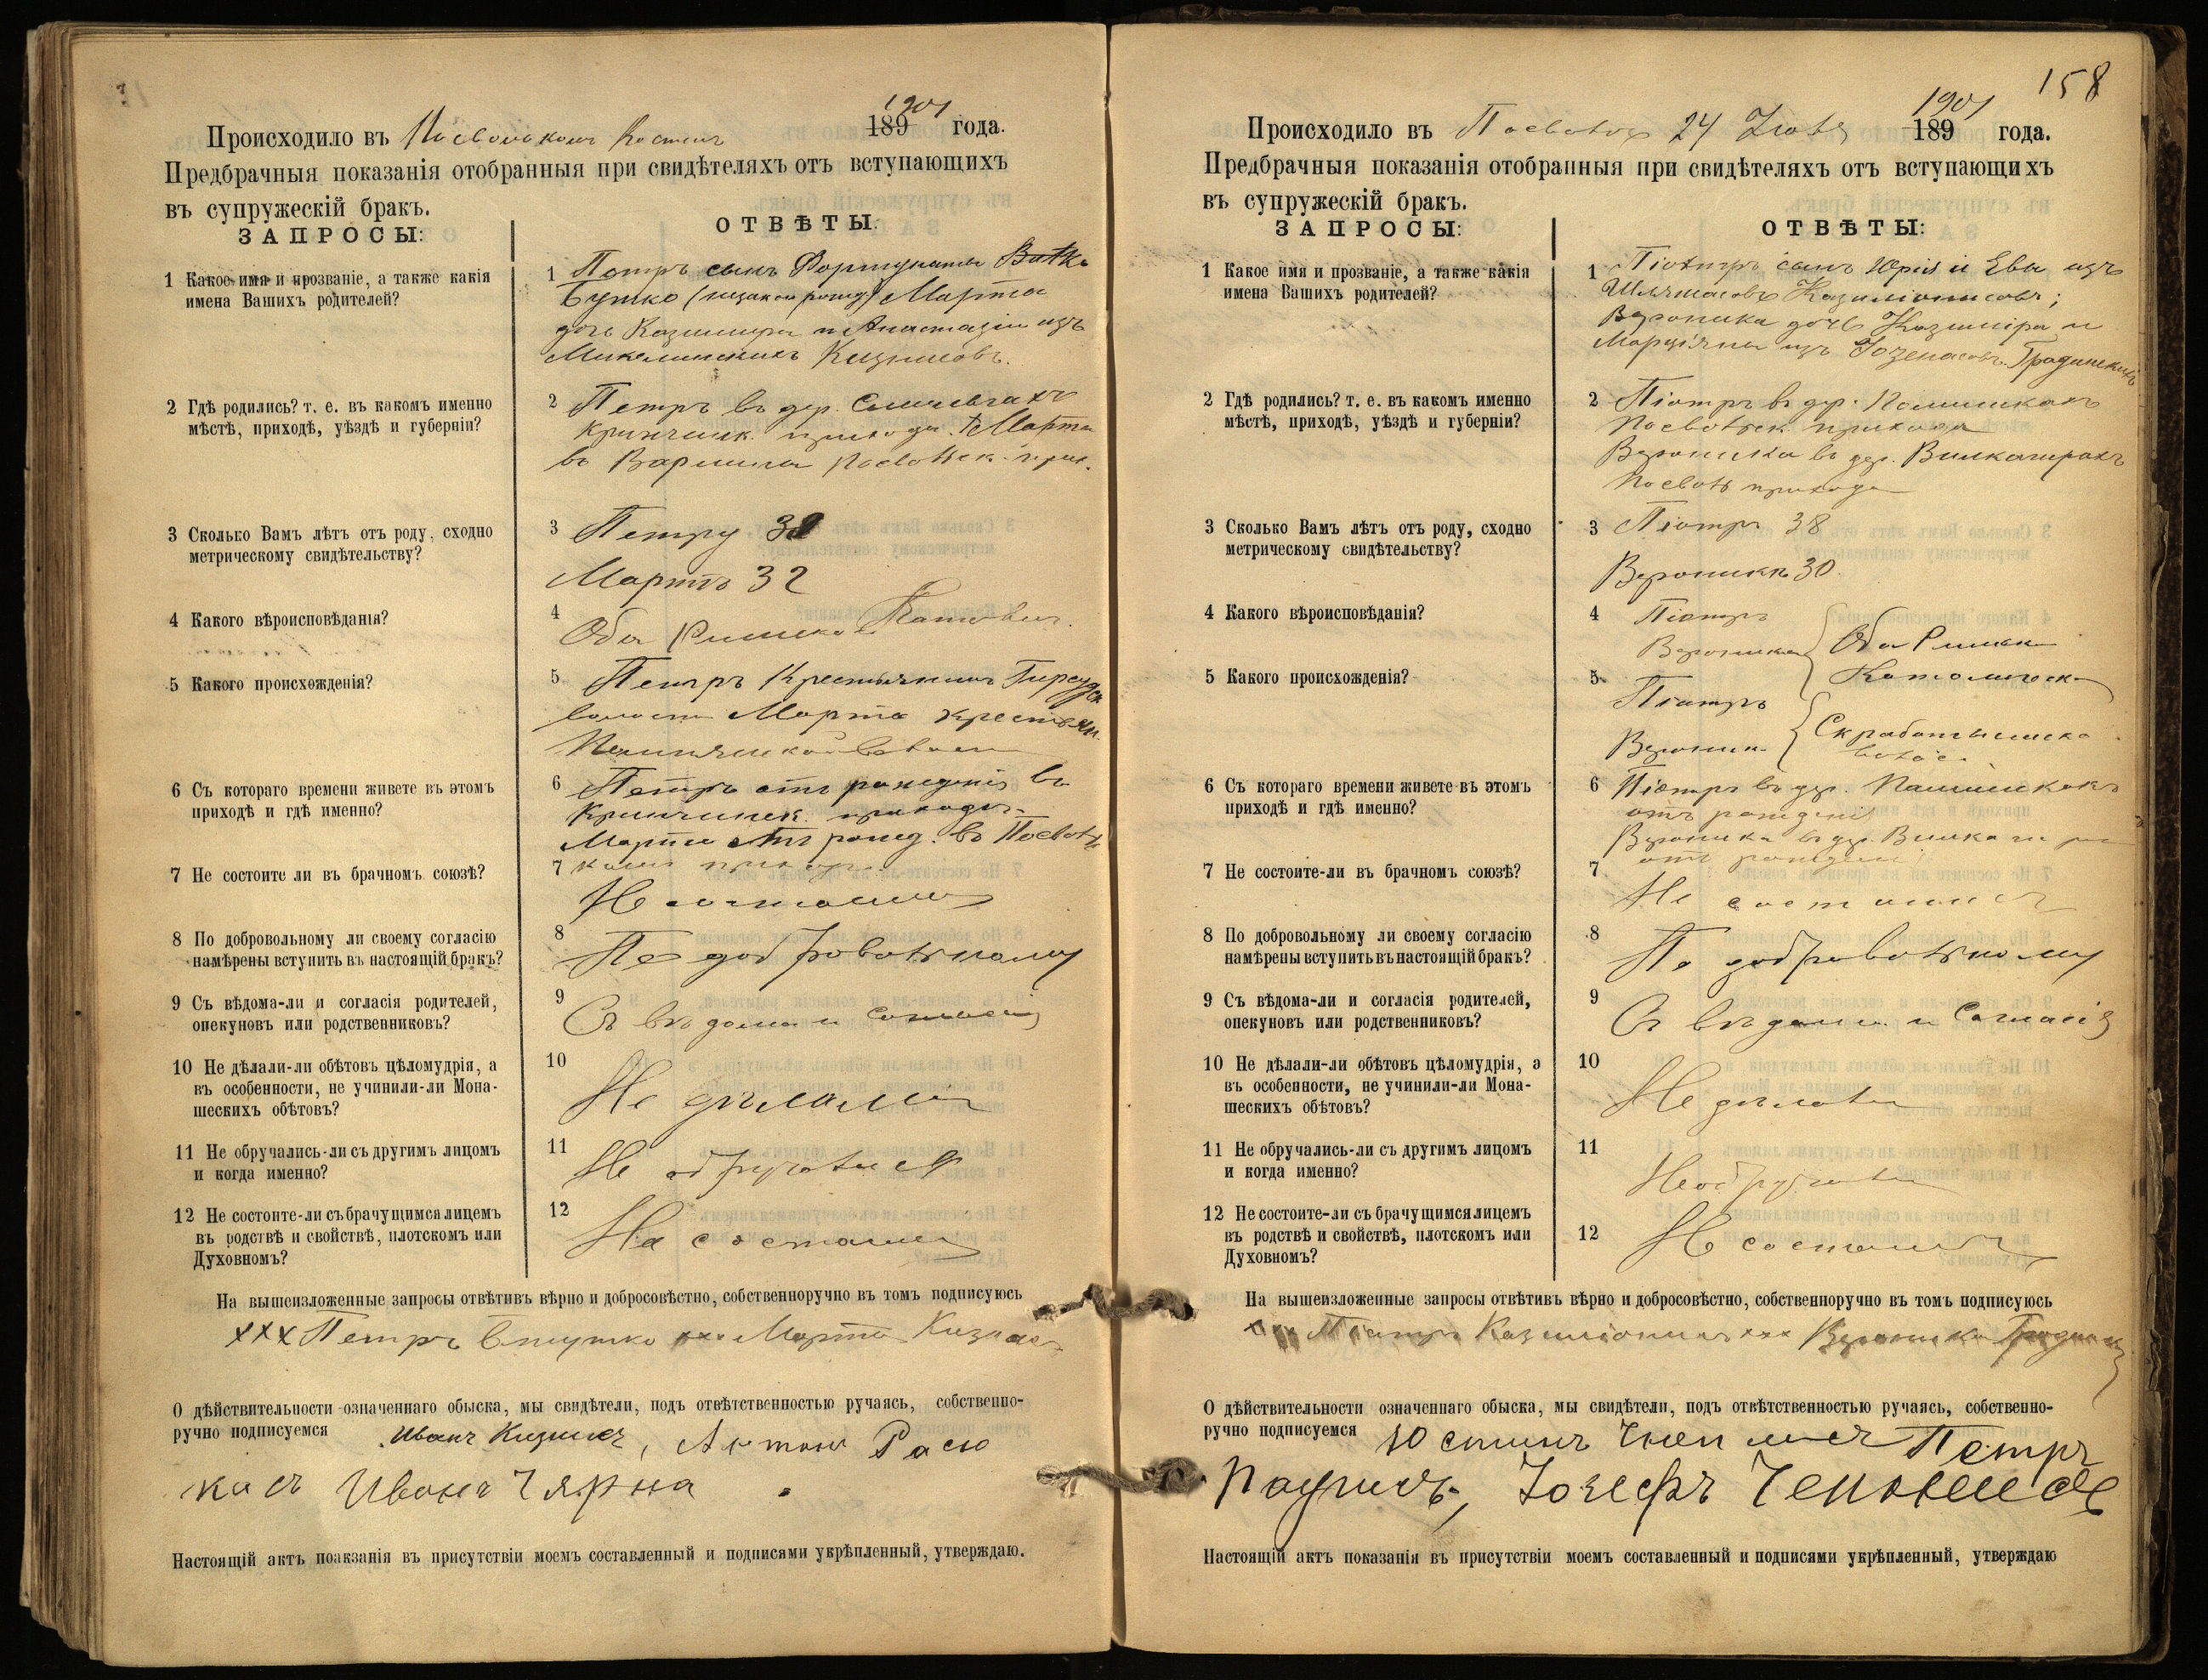 1901
Происходило въ 189 года.
Предбрачныя показанія отобранныя при свидѣтеляхъ отъ вступающихъ
въ супружескій бракъ.
ЗАПРОСЫ:
ОТВѢТЫ:
1 Какое имя и прозваніе, а также какія
имена Вашихъ родителей?
1 Петръ сынъ Фортунаты Butko
Бутко Марта
дочь Казимира и Анастазіи изъ
2 Гдѣ родились? т. е. въ какомъ именно
мѣстѣ, приходѣ, уѣздѣ и губерніи?
2 Петръ въ дер.
Кринчинск. прихода. Марта
въ
3 Сколько Вамъ лѣтъ отъ роду, сходно
метрическому свидѣтельству?
3 Петру
Мартѣ 32
4 Какого вѣроисповѣданія?
4 Оба Римско Католич.
5 Какого происхожденія?
5 Петръ Крестьянинъ
волости Марта крестьян.
6 Съ котораго времени живете въ этомъ
приходѣ и гдѣ именно?
6 Петръ отъ рожденія въ
Кринчинск. приходѣ
Марта отъ рожд. въ
7 Не состоите ли въ брачномъ союзѣ?
7
Не состоимъ
8 По добровольному ли своему согласію
намѣрены вступить въ настоящій бракъ?
8 По добровольному
9 Съ вѣдома-ли и согласія родителей,
опекуновъ или родственниковъ?
9 Съ вѣдома и согласія
10 Не дѣлали-ли обѣтовъ цѣломудрія, а
въ особенности, не учинили-ли Мона-
шескихъ обѣтовъ?
10 Не дѣлали
11 Не обручались-ли съ другимъ лицомъ
и когда именно?
11 Не обручались
12 Не состоите-ли съ брачущимся лицемъ
въ родствѣ и свойствѣ, плотскомъ или
Духовномъ?
12 Не состоимъ
На вышеизложенные запросы отвѣтивъ вѣрно и добросовѣстно, собственноручно въ томъ подписуюсь
ххх Петръ ххх Марта
О дѣйствительности означеннаго обыска, мы свидѣтели, подъ отвѣтственностью ручаясь, собственно-
ручно подписуемся Иванъ Антонъ Расю
касъ Иванъ Чярна
Настоящій актъ поакзанія въ присутствіи моемъ составленный и подписями укрѣпленный, утверждаю.
158
1901
Происходило въ 24 189 года.
Предбрачныя показанія отобранныя при свидѣтеляхъ отъ вступающихъ
въ супружескій бракъ.
ЗАПРОСЫ:
ОТВѢТЫ:
1 Какое имя и прозваніе, а также какія
имена Вашихъ родителей?
1 Піотръ сынъ Юрія и Евы изъ
Вероника дочь Казиміра и
изъ
2 Гдѣ родились? т. е. въ какомъ именно
мѣстѣ, приходѣ, уѣздѣ и губерніи?
2 Піотръ въ дер.
прихода
Вероника въ дер.
прихода
3 Сколько Вамъ лѣтъ отъ роду, сходно
метрическому свидѣтельству?
3 Піотръ 38
Вероника 30.
4 Какого вѣроисповѣданія?
4 Піотръ
Вероника Оба Римско
Католическ
5 Какого происхожденія?
5 Піотръ
Вероник.
6 Съ котораго времени живете въ этомъ
приходѣ и гдѣ именно?
6 Піотръ въ дер.
отъ рожденія
Вероника въ дер.
отъ рожденія
7 Не состоите-ли въ брачномъ союзѣ?
7
Не состоимъ
8 По добровольному ли своему согласію
намѣрены вступить въ настоящій бракъ?
8 По добровольному
9 Съ вѣдома-ли и согласія родителей,
опекуновъ или родственниковъ?
9 Съ вѣдома и согласія
10 Не дѣлали-ли обѣтовъ цѣломудрія, э
въ особенности, не учинили-ли Мона-
шескихъ обѣтовъ?
10 Не дѣлали
11 Не обручались-ли съ другимъ лицомъ
и когда именно?
11
12 Не состоите-ли съ брачущимся лицемъ
въ родствѣ и свойствѣ, плотскомъ или
Духовномъ?
12 Не состоимъ
На вышеизложенные запросы отвѣтивъ вѣрно и добросовѣстно, собственноручно въ томъ подписуюсь
ххх Піотръ ххх Вероника
О дѣйствительности означеннаго обыска, мы свидѣтели, подъ отвѣтственностью ручаясь, собственно-
ручно подписуемся Юстинъ Петръ
Іозефъ
Настоящій актъ показанія въ присутствіи моемъ составленный и подписями укрѣпленный, утверждаю